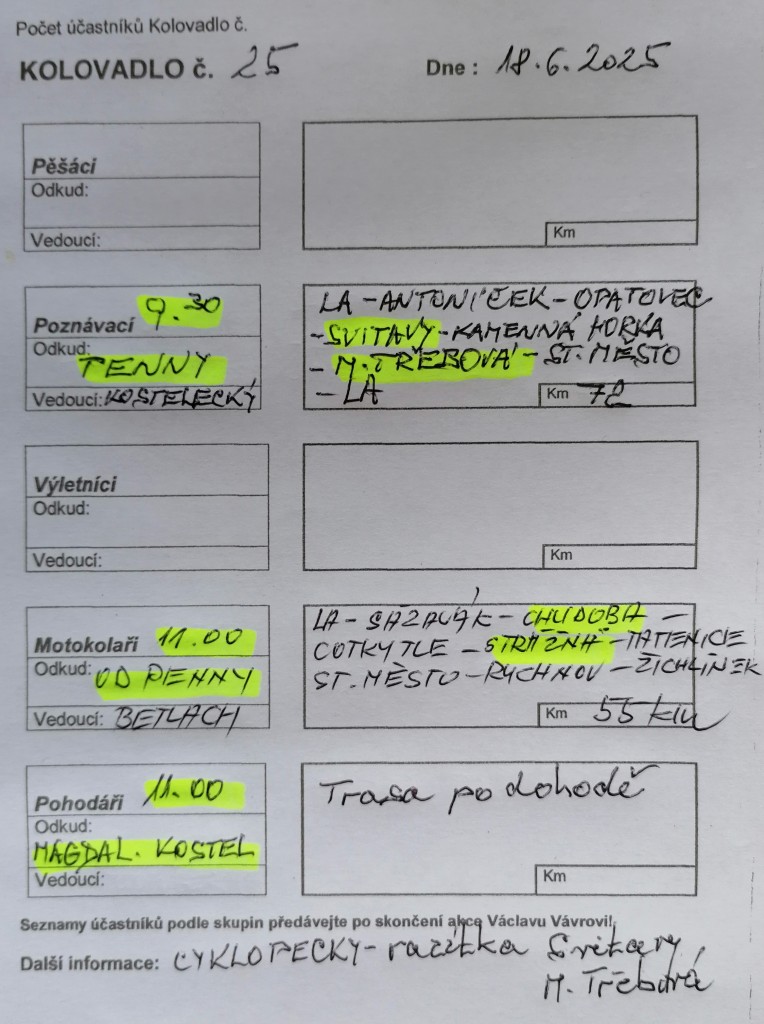 Počet účastníků Kolovadlo č.
KOLOVADLO č. 25 Dne : 18.6.2025
Pěšáci
Odkud:
Vedoucí:
Km
Poznávací 9.30
Odkud:
PENNY
Vedoucí: KOSTELECKÝ
LA - ANTONÍČEK - OPATOVEC
- SVITAVY - KAMENNÁ HORKA
- M. TŘEBOVÁ - ST. MĚSTO
- LA
Km 72
Výletníci
Odkud:
Vedoucí:
Km
Motokolaři 11.00
Odkud: OD PENNY
Vedoucí: BETLACH
LA - SÁZAVÁK - CHUDOBA -
COTKYTLE - STRÁŽNÁ - TATENICE
ST. MĚSTO - RYCHNOV - ŽICHLÍNEK
Km 55 km
Pohodáři 11.00
Odkud:
MAGDAL. KOSTEL
Vedoucí:
Trasa po dohodě
Km
Seznamy účastníků podle skupin předávejte po skončení akce Václavu Vávrovi!
Další informace: CYKLOPECKY - razítka Svitavy,
M. Třebová